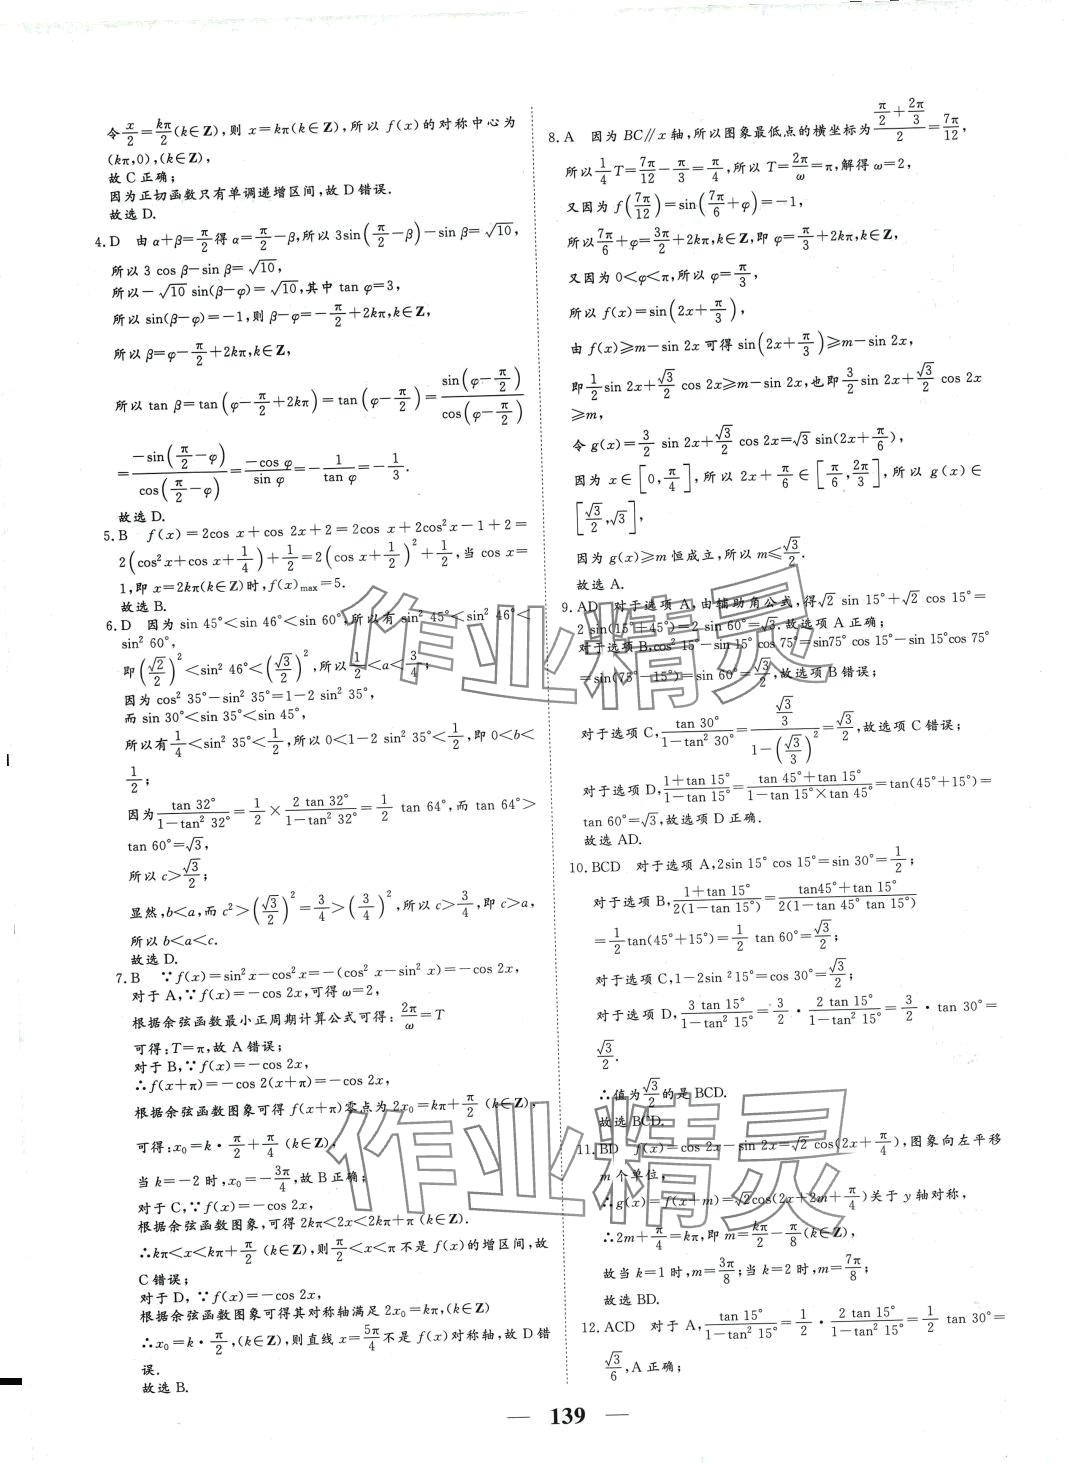 令x/2=kπ/2(k∈Z),则 x=kπ(k∈Z),所以 f(x)的对称中心为
(kπ,0),(k∈Z),
故 C 正确;
因为正切函数只有单调递增区间,故 D 错误.
故选 D.
4.D 由 α+β=π/2得 α=π/2-β,所以 3sin(π/2-β)-sin β=√10,
所以 3 cos β-sin β=√10,
所以-√10 sin(β-φ)=√10,其中 tan φ=3,
所以 sin(β-φ)=-1,则 β-φ=-π/2+2kπ,k∈Z,
所以 β=φ-π/2+2kπ,k∈Z,
所以 tan β=tan(φ-π/2+2kπ)=tan(φ-π/2)=sin(φ-π/2)/cos(φ-π/2)
=-sin(π/2-φ)/cos(π/2-φ)=-cos φ/sin φ=-1/tan φ=-1/3.
故选 D.
5.B f(x)=2cos x+cos 2x+2=2cos x+2cos²x-1+2=
2(cos²x+cos x+1/4)+1/2=2(cos x+1/2)²+1/2,当 cos x=
1,即 x=2kπ(k∈Z)时,f(x)max=5.
故选 B.
6.D 因为 sin 45°<sin 46°<sin 60°,所以有 sin² 45°<sin² 46°<
sin² 60°,
即(√2/2)²<sin² 46°<(√3/2)²,所以1/2<a<3/4;
因为 cos² 35°-sin² 35°=1-2 sin² 35°,
而 sin 30°<sin 35°<sin 45°,
所以有1/4<sin² 35°<1/2,所以 0<1-2 sin² 35°<1/2,即 0<b<
1/2;
因为tan 32°/(1-tan² 32°)=1/2×2 tan 32°/(1-tan² 32°)=1/2 tan 64°,而 tan 64°>
tan 60°=√3,
所以 c>√3/2;
显然,b<a,而 c²>(√3/2)²=3/4>(3/4)²,所以 c>3/4,即 c>a,
所以 b<a<c.
故选 D.
7.B ∵f(x)=sin²x-cos²x=-(cos² x-sin² x)=-cos 2x,
对于 A,∵f(x)=-cos 2x,可得 ω=2,
根据余弦函数最小正周期计算公式可得:2π/ω=T
可得:T=π,故 A 错误;
对于 B,∵f(x)=-cos 2x,
∴f(x+π)=-cos 2(x+π)=-cos 2x,
根据余弦函数图象可得 f(x+π)零点为 2x₀=kπ+π/2 (k∈Z),
可得:x₀=k·π/2+π/4 (k∈Z),
当 k=-2 时,x₀=-3π/4,故 B 正确;
对于 C,∵f(x)=-cos 2x,
根据余弦函数图象,可得 2kπ<2x<2kπ+π (k∈Z).
∴kπ<x<kπ+π/2 (k∈Z),则π/2<x<π 不是 f(x)的增区间,故
C 错误;
对于 D,∵f(x)=-cos 2x,
根据余弦函数图象可得其对称轴满足 2x₀=kπ,(k∈Z)
∴x₀=k·π/2,(k∈Z),则直线 x=5π/4不是 f(x)对称轴,故 D 错
误.
故选 B.
8.A 因为 BC∥x 轴,所以图象最低点的横坐标为(π/2+2π/3)/2=7π/12,
所以1/4T=7π/12-π/3=π/4,所以 T=2π/ω=π,解得 ω=2,
又因为 f(7π/12)=sin(7π/6+φ)=-1,
所以7π/6+φ=3π/2+2kπ,k∈Z,即 φ=π/3+2kπ,k∈Z,
又因为 0<φ<π,所以 φ=π/3,
所以 f(x)=sin(2x+π/3),
由 f(x)≥m-sin 2x 可得 sin(2x+π/3)≥m-sin 2x,
即1/2sin 2x+√3/2 cos 2x≥m-sin 2x,也即3/2sin 2x+√3/2 cos 2x
≥m,
令 g(x)=3/2 sin 2x+√3/2 cos 2x=√3 sin(2x+π/6),
因为 x∈[0,π/4],所以 2x+π/6∈[π/6,2π/3],所以 g(x)∈
[√3/2,√3],
因为 g(x)≥m 恒成立,所以 m≤√3/2.
故选 A.
9.AD 对于选项 A,由辅助角公式,得√2 sin 15°+√2 cos 15°=
2 sin(15°+45°)=2 sin 60°=√3.故选项 A 正确;
对于选项 B,cos² 15°-sin 15° cos 75°=sin75° cos 15°-sin 15°cos 75°
=sin(75°-15°)=sin 60°=√3/2,故选项 B 错误;
对于选项 C,tan 30°/(1-tan² 30°)=(√3/3)/(1-(√3/3)²)=√3/2,故选项 C 错误;
对于选项 D,(1+tan 15°)/(1-tan 15°)=(tan 45°+tan 15°)/(1-tan 15°×tan 45°)=tan(45°+15°)=
tan 60°=√3,故选项 D 正确.
故选 AD.
10.BCD 对于选项 A,2sin 15° cos 15°=sin 30°=1/2;
对于选项 B,(1+tan 15°)/(2(1-tan 15°))=(tan45°+tan 15°)/(2(1-tan 45° tan 15°))
=1/2tan(45°+15°)=1/2 tan 60°=√3/2;
对于选项 C,1-2sin ²15°=cos 30°=√3/2;
对于选项 D,3 tan 15°/(1-tan² 15°)=3/2·2 tan 15°/(1-tan² 15°)=3/2·tan 30°=
√3/2.
∴值为√3/2的是 BCD.
故选 BCD.
11.BD f(x)=cos 2x-sin 2x=√2 cos(2x+π/4),图象向左平移
m 个单位,
∴g(x)=f(x+m)=√2cos(2x+2m+π/4)关于 y 轴对称,
∴2m+π/4=kπ,即 m=kπ/2-π/8(k∈Z),
故当 k=1 时,m=3π/8;当 k=2 时,m=7π/8;
故选 BD.
12.ACD 对于 A,tan 15°/(1-tan² 15°)=1/2·2 tan 15°/(1-tan² 15°)=1/2 tan 30°=
√3/6,A 正确;
作业精灵
作业精灵
— 139 —